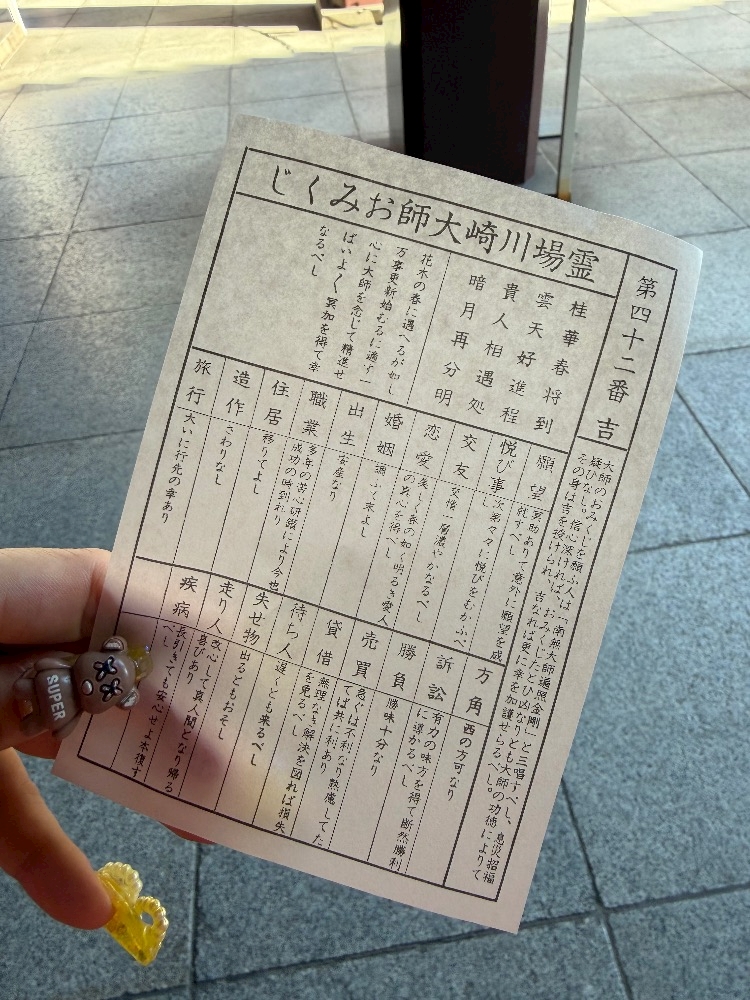 霊場川崎大師おみくじ
第四十二番 吉
大師のおみくじを願ふ人は「南無大師遍照金剛」と三唱すべし、息災招福
疑ひなし。信心深ければ、おみくじたとひ凶なりとも大師の功徳によりて
その身は吉を授けられ、吉なれば更に幸を加護せらるべし。
桂華春将到
雲天好進程
貴人相遇処
暗月再分明
花木の春に遇へるが如し
万事更新始むるに適す一
心に大師を念じて精進せ
ばいよく冥加を得て幸
なるべし
願望 冥助ありて意外に願望を成
就すべし
悦び事 次第々々に悦びをむかふべ
し
交友 交情一層濃やかなるべし
恋愛 美しく春の如く明るき愛人
の真心を得べし
婚姻 調ふて末よし
出生 安産なり
職業 多年の苦心研鑽により今也
成功の時到れり
住居 移りてよし
造作 さわりなし
旅行 大いに行先の幸あり
方角 西の方可なり
訴訟 有力の味方を得て断然勝利
に導かるべし
勝負 勝味十分なり
売買 急ぐは不利なり熟慮してた
てば共に利あり
貸借 無理なき解決を図れば損失
を免るべし
待ち人 遅くとも来るべし
失せ物 出るともおそし
走り人 改心して真人間となり帰る
喜びあり
疾病 長引きても安心せよ本復す
べし
SUPER